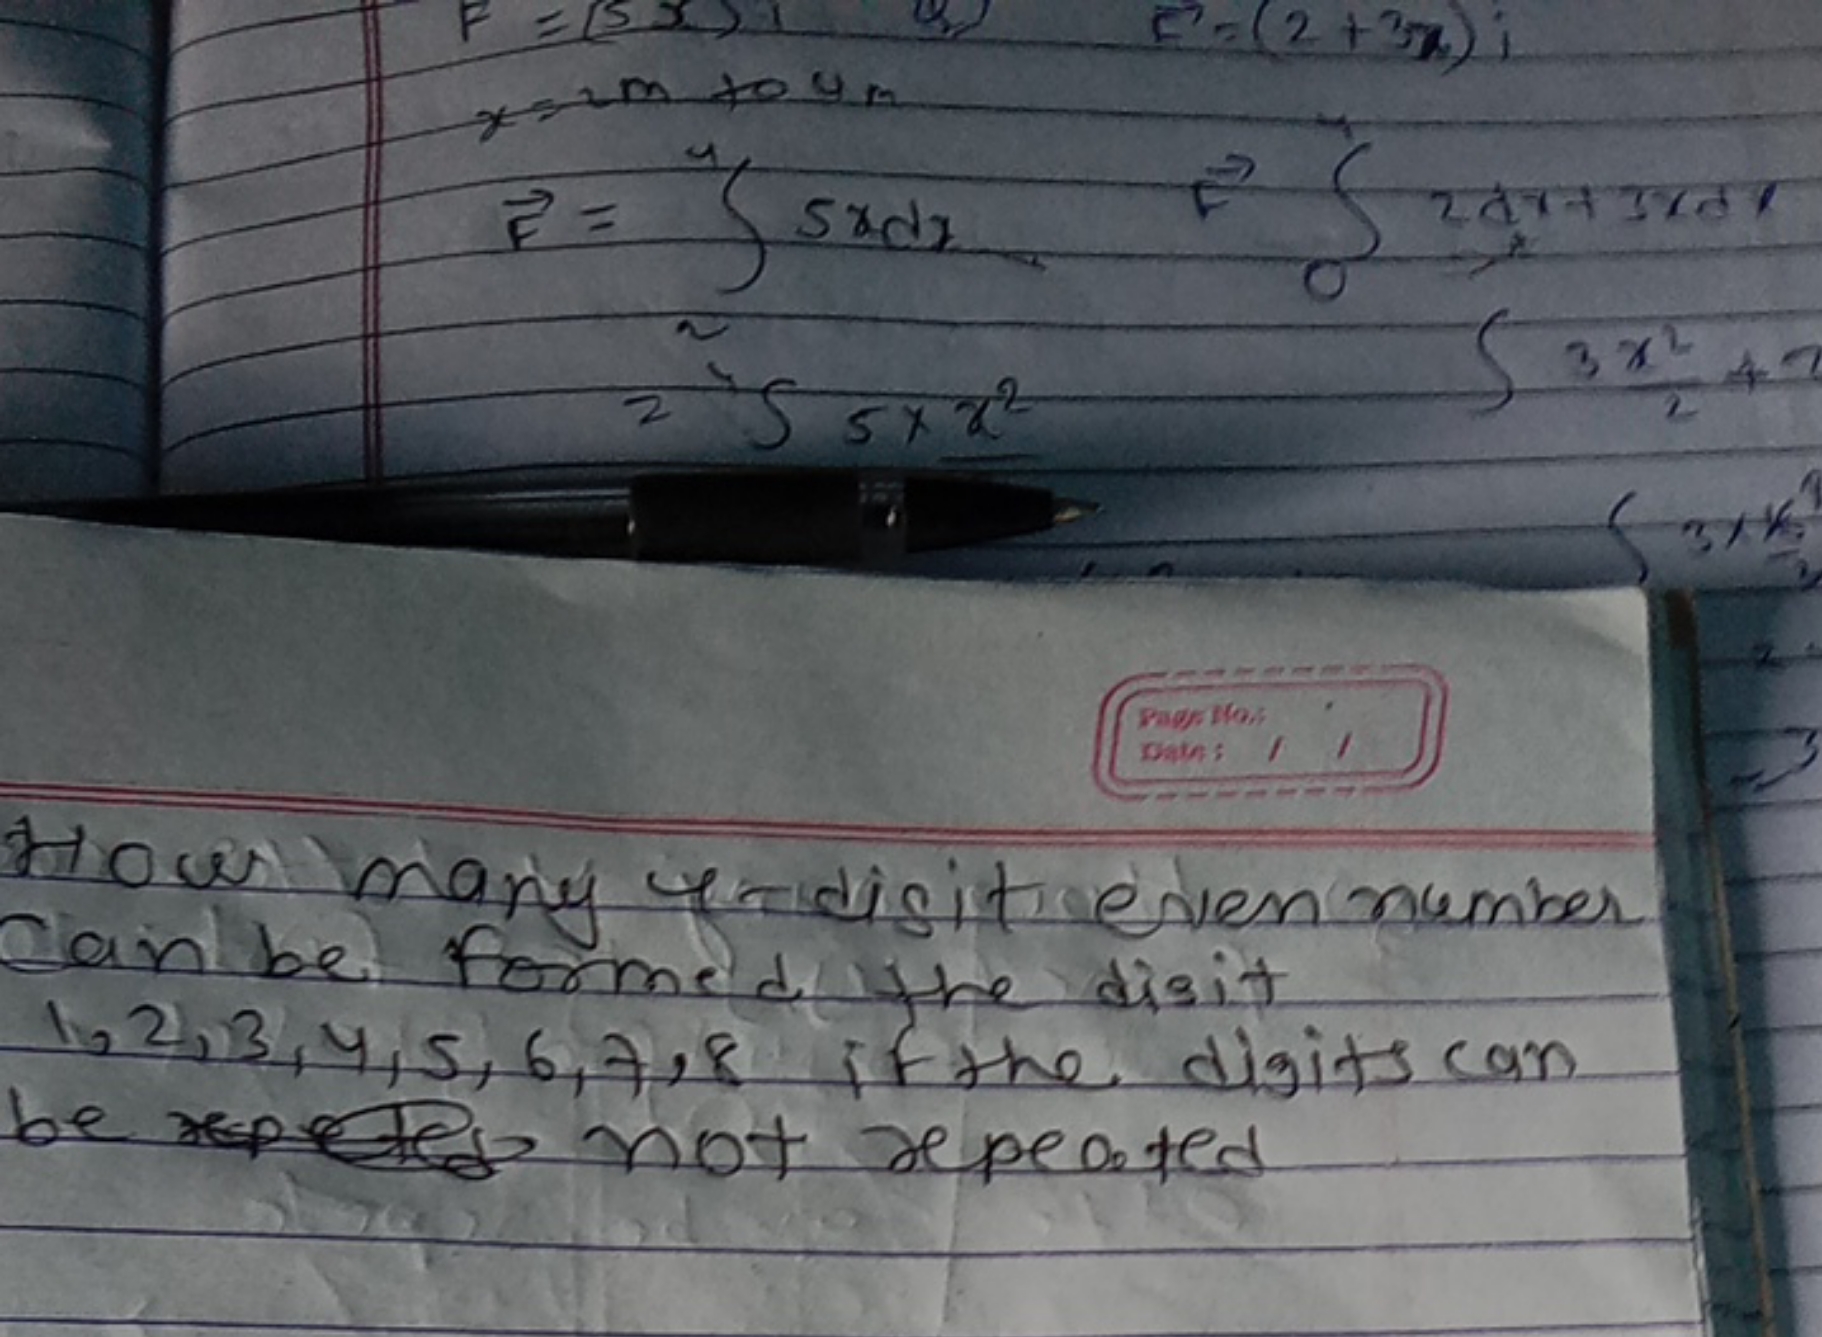 F = (5x) i
F = (2 + 3x) i
x = 2m to 4m
F = ∫ 5xdx
4
2
F ∫ 2dx + 3xdx
4
0
2 ∫ 5 x x²
∫ 3x²/2 +
∫ 3x
Page No.:
Date: / /
How many 4-digit even number
Can be formed the digit
1, 2, 3, 4, 5, 6, 7, 8 if the digits can
be not repeated